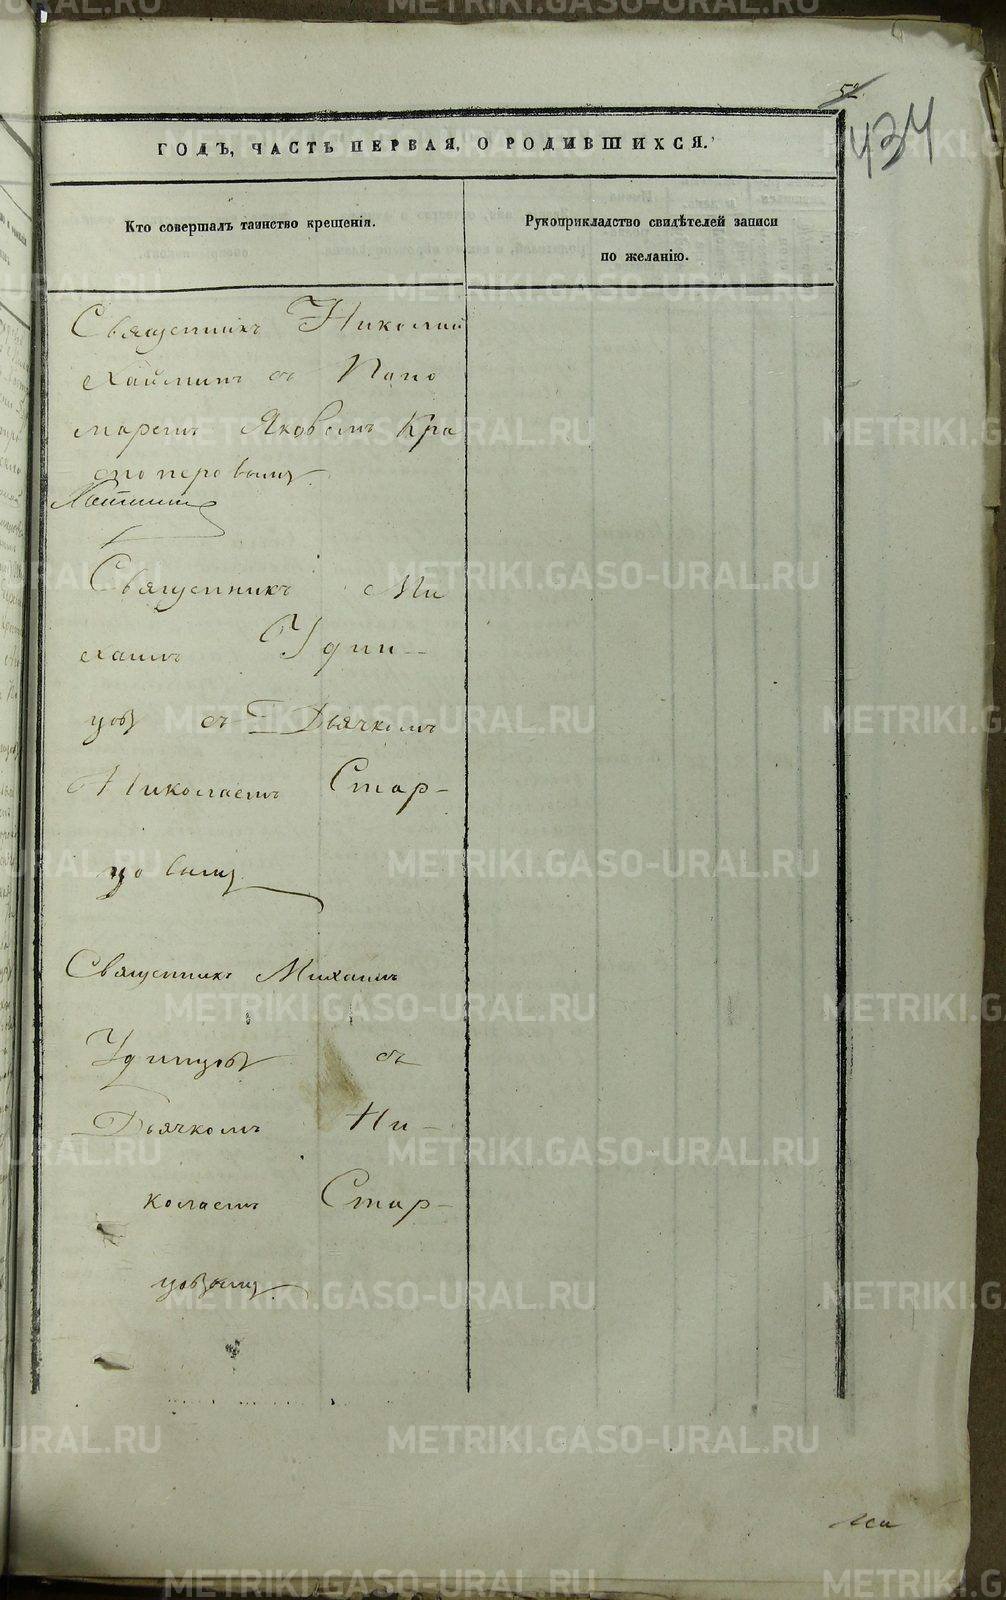 52
434
ГОДЪ, ЧАСТЬ ПЕРВАЯ, О РОДИВШИХСЯ.
Кто совершалъ таинство крещенія.
Рукоприкладство свидѣтелей записи
по желанію.
Священникъ Николай
съ Поно
маремъ Яковомъ Кра
сноперовымъ
Священникъ Ми
хаилъ Удин-
цовъ съ Дьячкомъ
Николаемъ Стар-
цовымъ
Священникъ Михаилъ
Удинцовъ съ
Дьячкомъ Ни-
колаемъ Стар-
цовымъ
METRIKI.GASO-URAL.RU